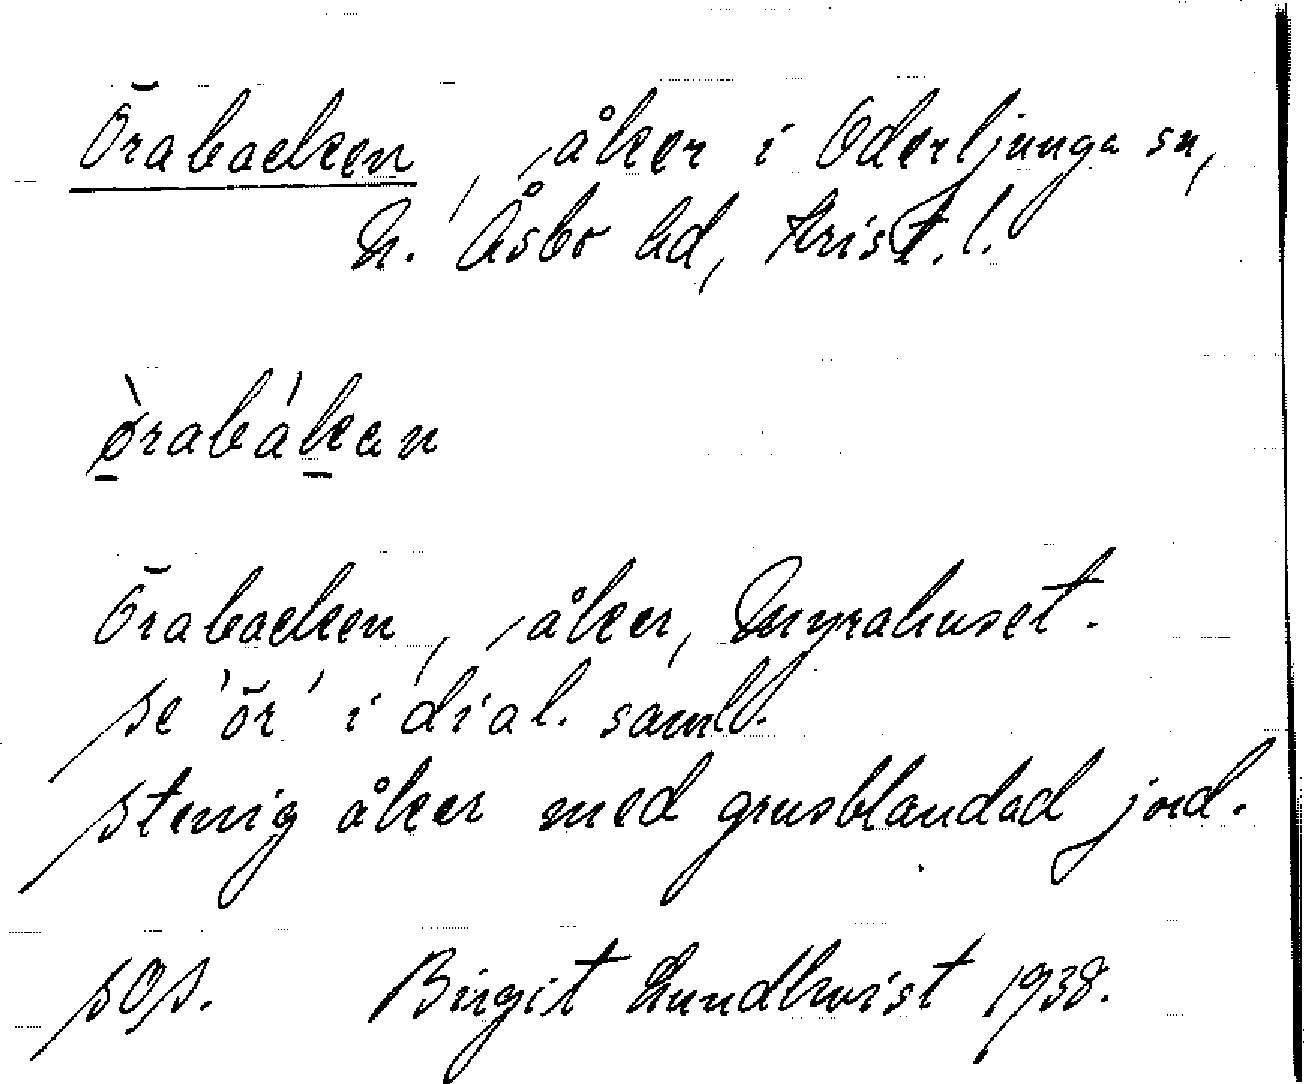 Örabacken, åker i Oderljunga sn,
N. Åsbo hd, Krist. l.
ø̀rabákan
Örabacken, åker, Myrahuset.
Se 'ör' i dial. saml.
Stenig åker med grusblandad jord.
SOS. Birgit Lundkvist 1938.